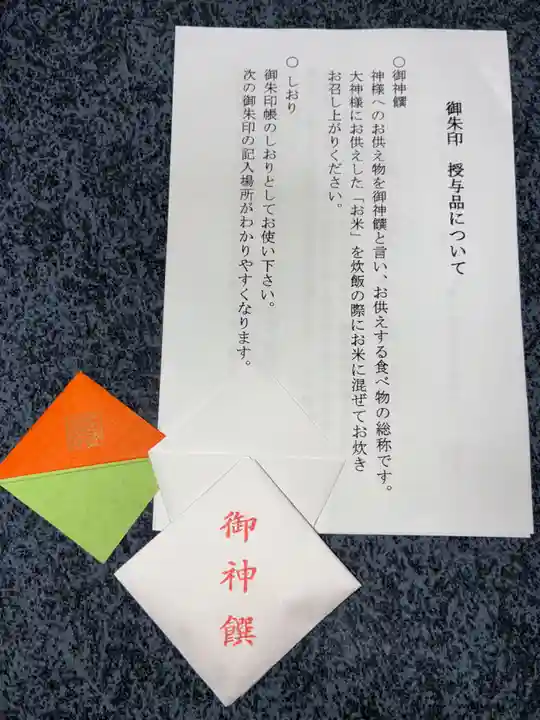 御朱印 授与品について
○御神饌
神様へのお供え物を御神饌と言い、お供えする食べ物の総称です。
大神様にお供えした「お米」を炊飯の際にお米に混ぜてお炊き
お召し上がりください。
○しおり
御朱印帳のしおりとしてお使い下さい。
次の御朱印の記入場所がわかりやすくなります。
御神饌